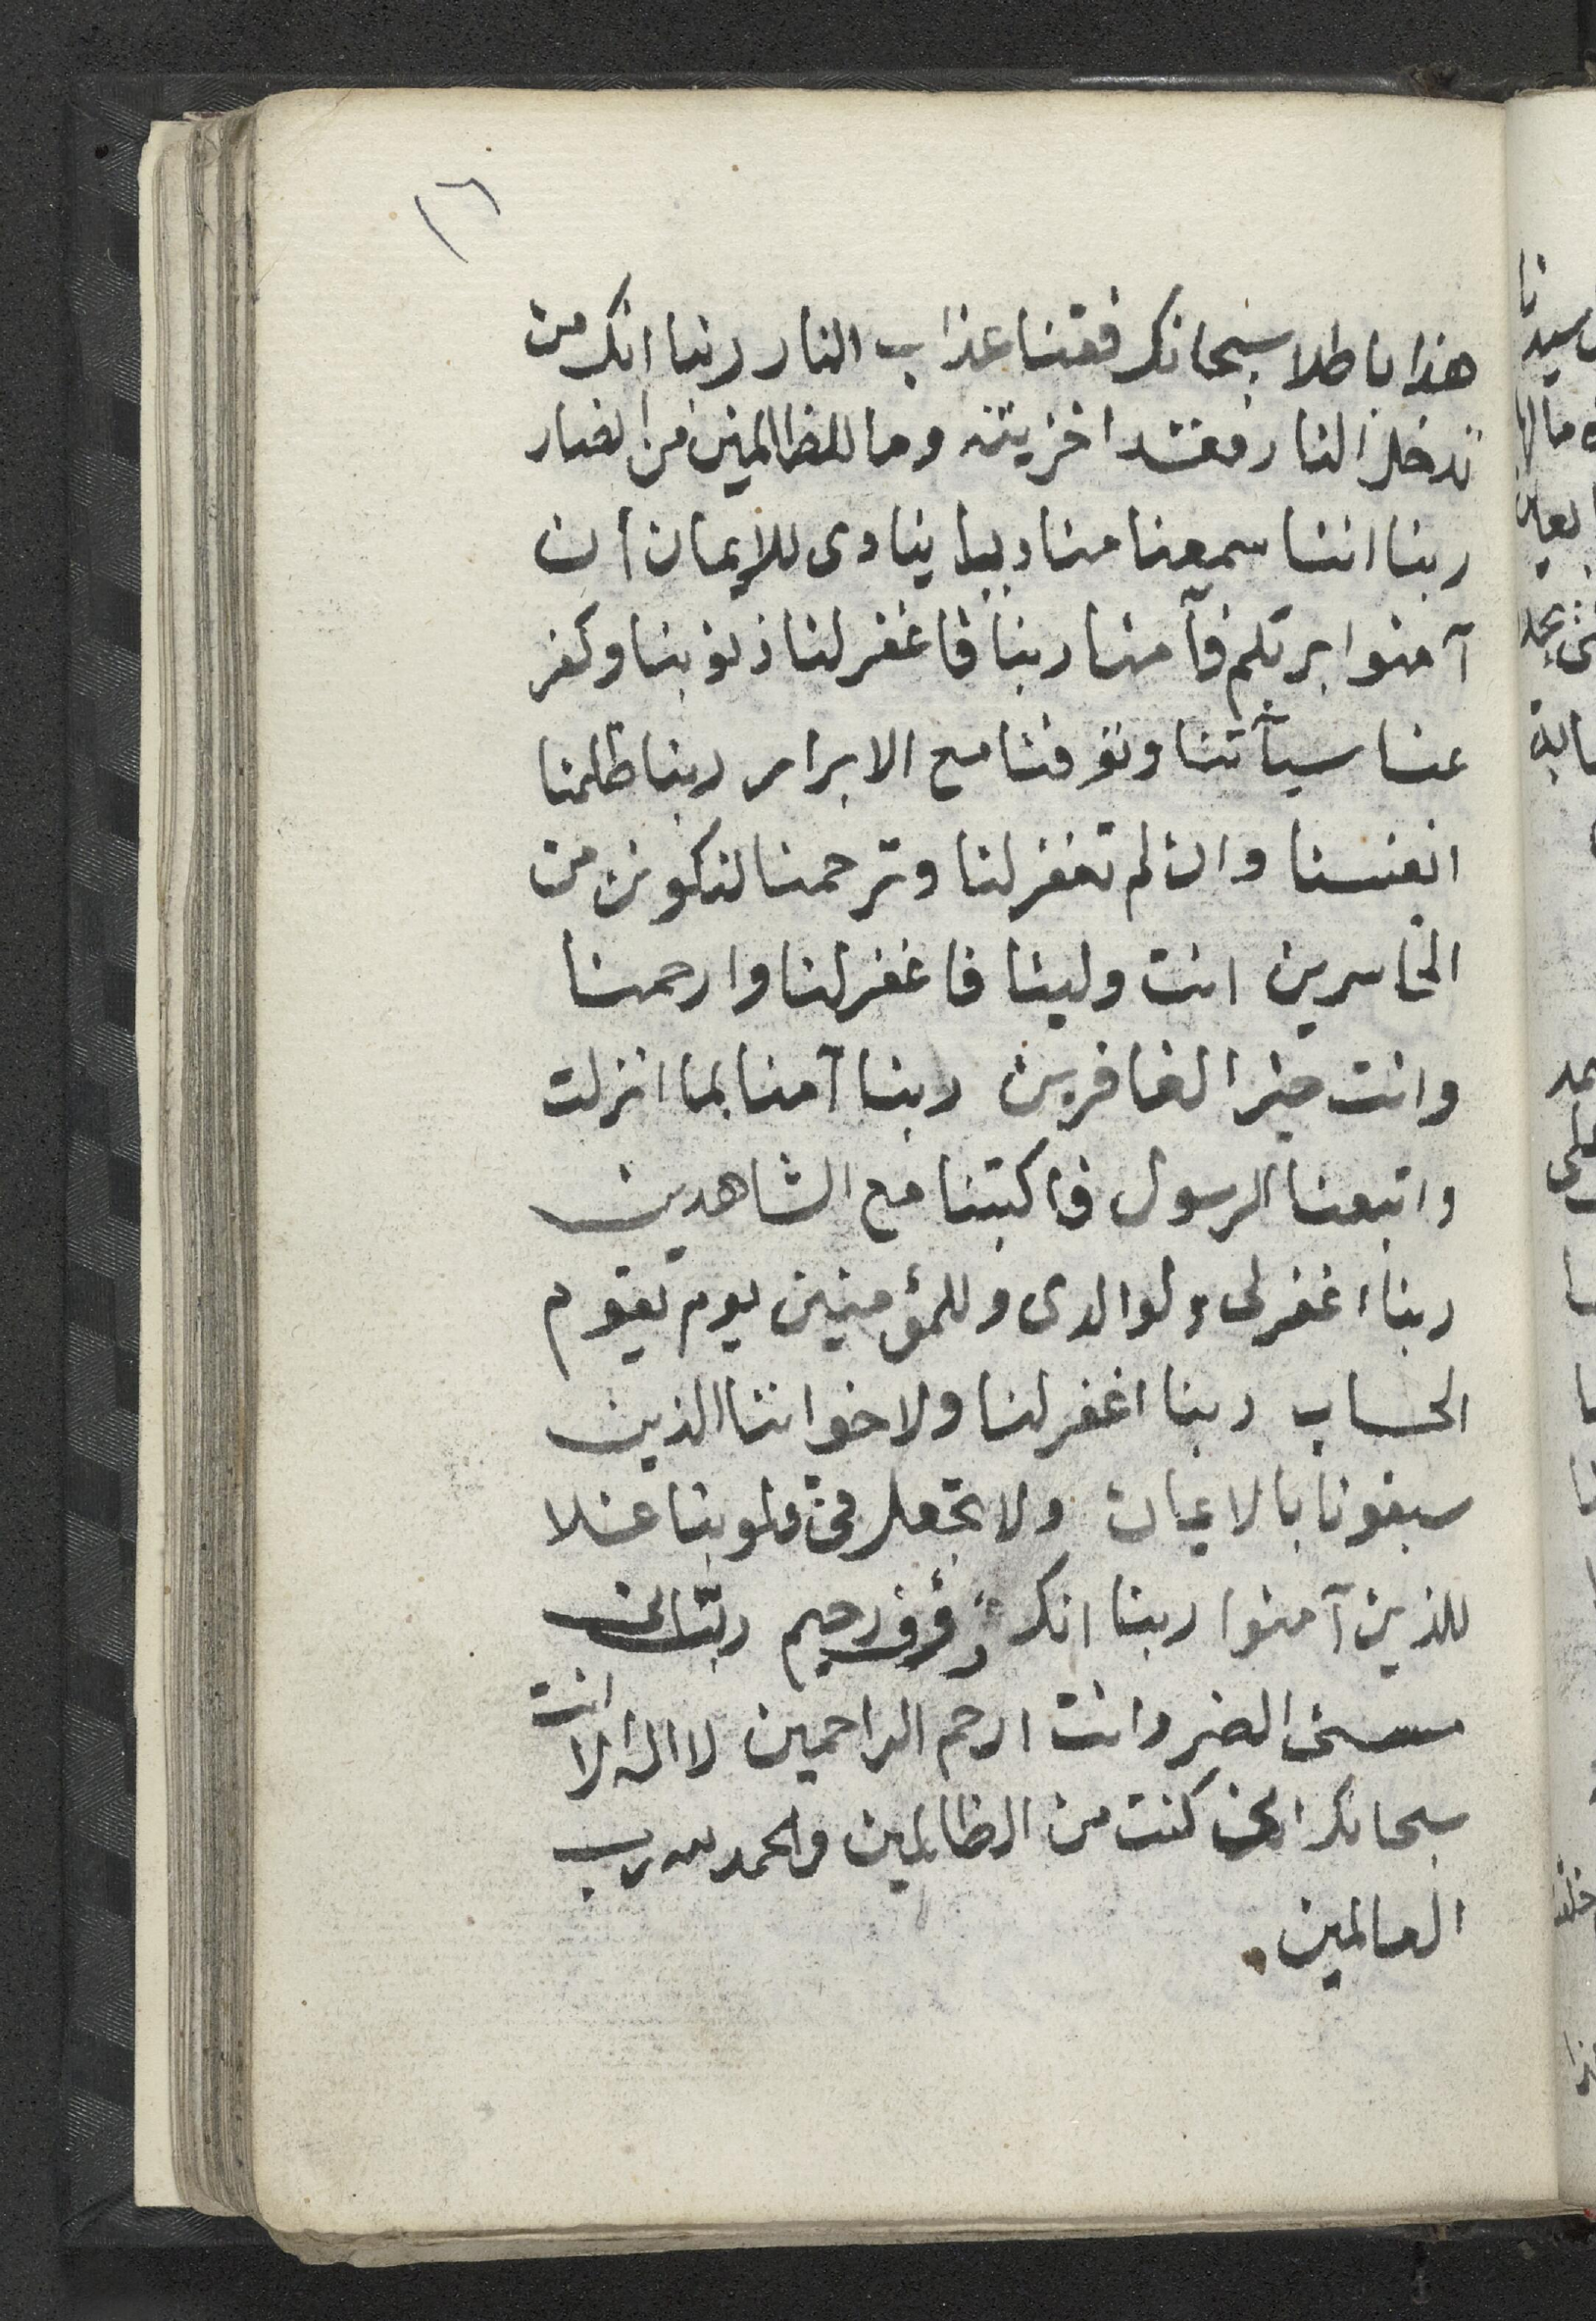 ١٦
هذا باطلا سبحانك فقنا عذاب النار ربنا انك من
تدخل النار فقد اخزيته وما للظالمين من انصار
ربنا اننا سمعنا مناديا ينادى للايمان أن
آمنوا بربكم فآمنا ربنا فاغفر لنا ذنوبنا وكفر
عنا سيآتنا وتوفنا مع الابرار ربنا ظلمنا
انفسنا وان لم تغفر لنا وترحمنا لنكونن من
الخاسرين انت ولينا فاغفر لنا وارحمنا
وانت خير الغافرين ربنا آمنا بما انزلت
واتبعنا الرسول فاكتبنا مع الشاهدين
ربنا اغفر لى ولوالدى وللمؤمنين يوم يقوم
الحساب ربنا اغفر لنا ولاخواننا الذين
سبقونا بالايمان ولا تجعل فى قلوبنا غلا
للذين آمنوا ربنا انك رؤوف رحيم ربّ انى
مسنى الضر وانت ارحم الراحمين لا اله الا انت
سبحانك انى كنت من الظالمين والحمد لله رب
العالمين.